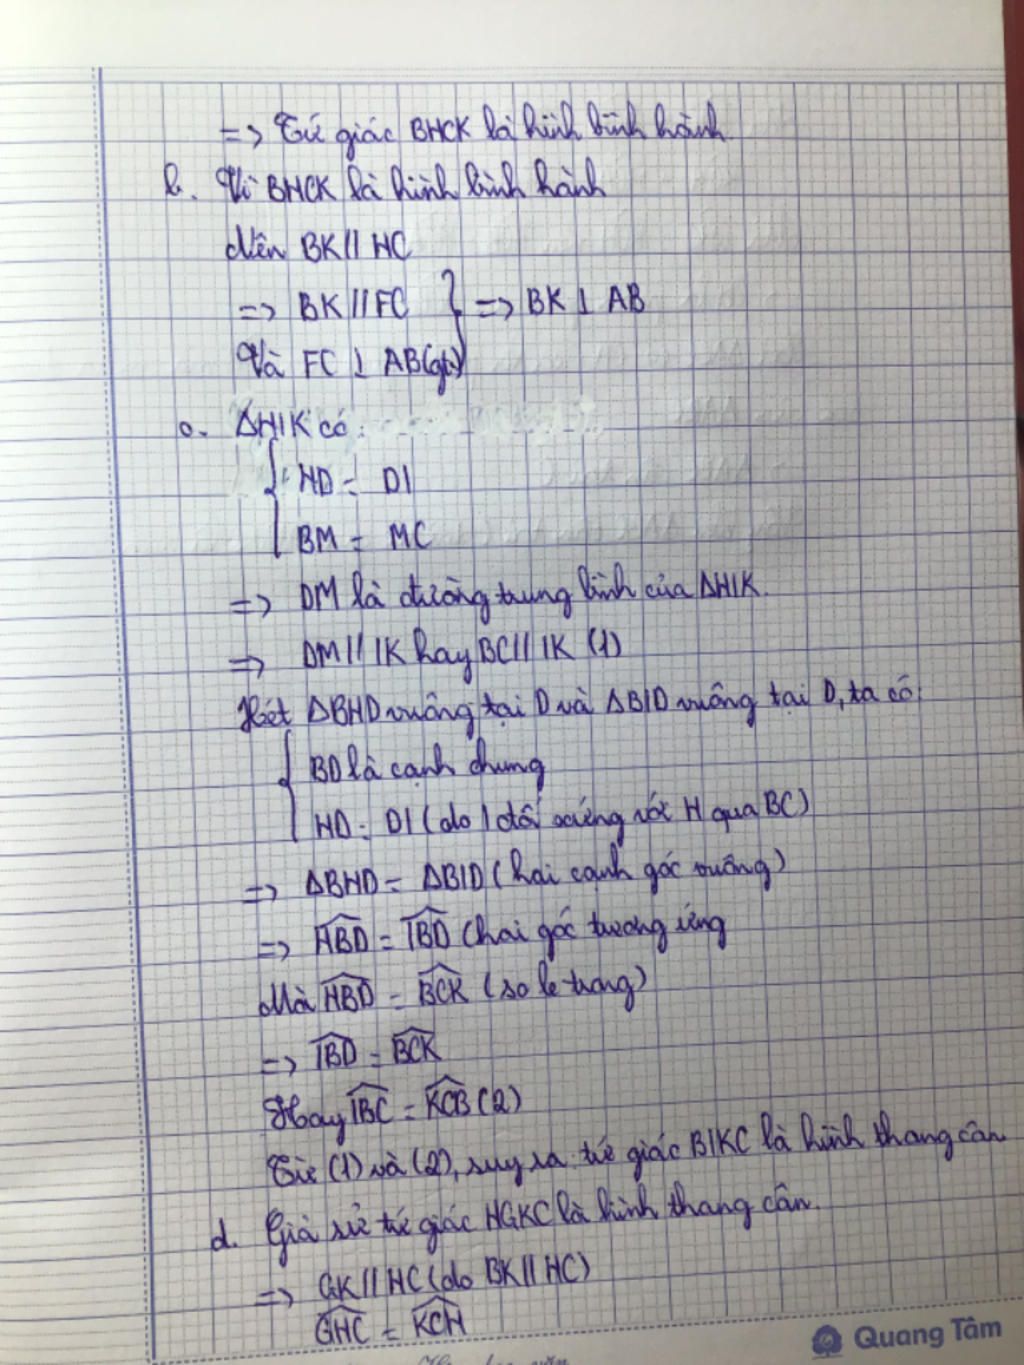 => Tứ giác BHCK là hình bình hành
b. Vì BHCK là hình bình hành
Nên BK // HC
=> BK // FC } => BK ⊥ AB
Và FC ⊥ AB (gt)
c. ΔHIK có:
{ HD = DI
BM = MC
=> DM là đường trung bình của ΔHIK.
=> DM // IK hay BC // IK (1)
Xét ΔBHD vuông tại D và ΔBID vuông tại D, ta có:
{ BD là cạnh chung
HD = DI (do I đối xứng với H qua BC)
=> ΔBHD = ΔBID (hai cạnh góc vuông)
=> \widehat{HBD} = \widehat{IBD} (hai góc tương ứng
Mà \widehat{HBD} = \widehat{BCK} (so le trong)
=> \widehat{IBD} = \widehat{BCK}
Hay \widehat{IBC} = \widehat{KCB} (2)
Từ (1) và (2), suy ra: tứ giác BIKC là hình thang cân
d. Giả sử tứ giác HGKC là hình thang cân.
=> GK // HC (do BK // HC)
\widehat{GHC} = \widehat{KCH}
Quang Tâm